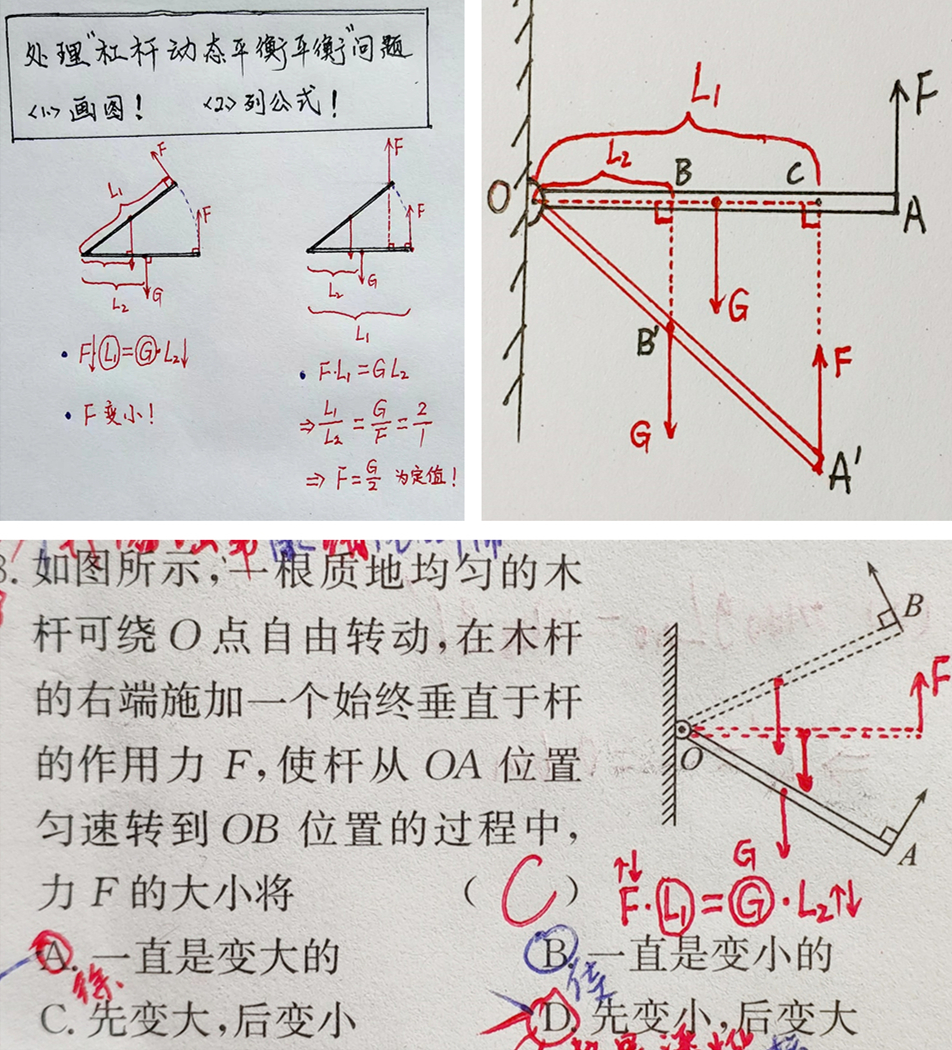 处理"杠杆动态平衡平衡"问题
<1>画图! <2>列公式!
F
L1
F
L2
G
F
F
L2
G
L1
F↓·L1=G·L2↓
F变小!
F·L1=GL2
⇒L1/L2=G/F=2/1
⇒F=G/2 为定值!
L1
F
L2
B
C
O
A
G
B'
F
G
A'
3.如图所示,一根质地均匀的木
杆可绕O点自由转动,在木杆
的右端施加一个始终垂直于杆
的作用力F,使杆从OA位置
匀速转到OB位置的过程中,
力F的大小将 (C)
A.一直是变大的
B.一直是变小的
C.先变大,后变小
D.先变小,后变大
B
F
O
G
A
↑↓F·L1=G·L2↑↓